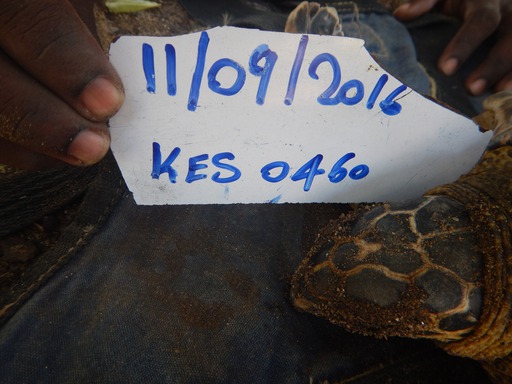 11/09/2016
KES 0460